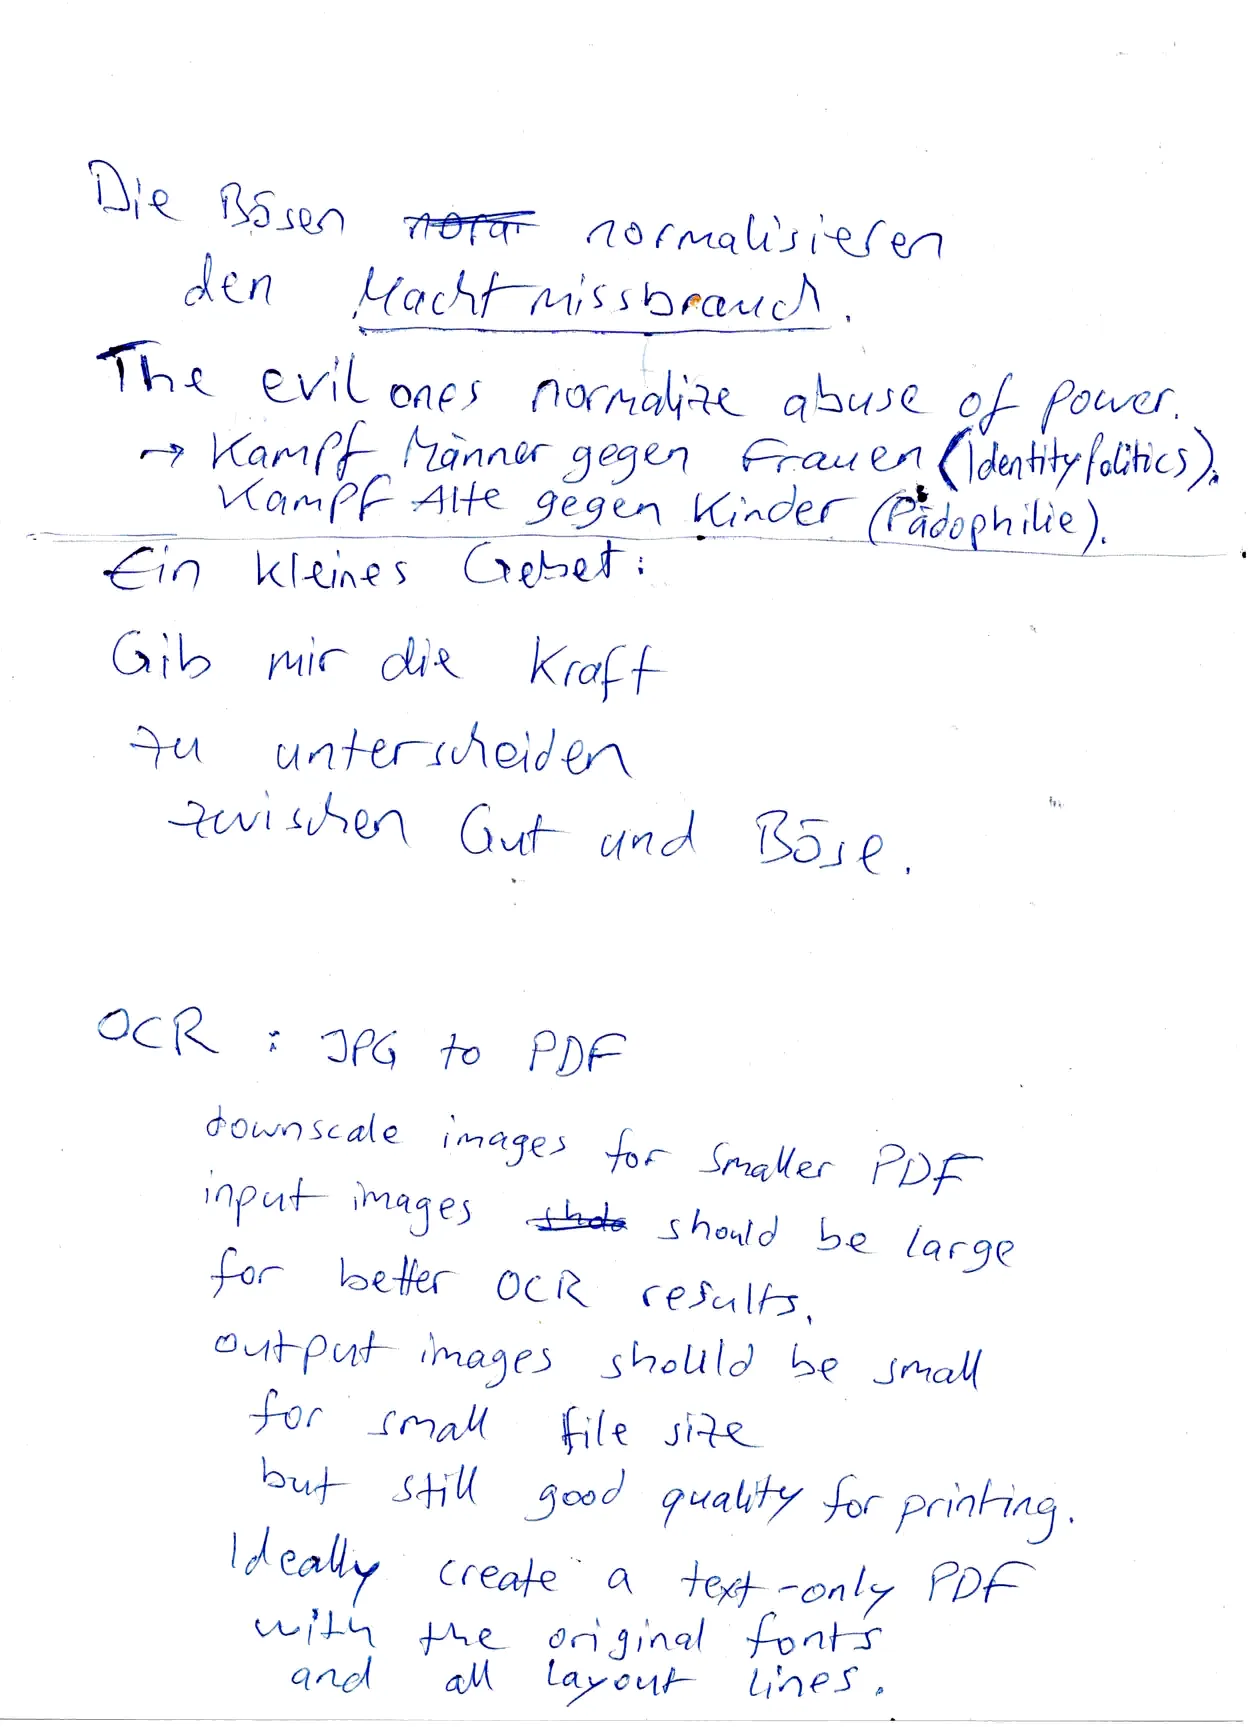 Die Bösen normalisieren
den Machtmissbrauch.
The evil ones normalize abuse of power.
→ Kampf Männer gegen Frauen (Identity Politics).
Kampf Alte gegen Kinder (Pädophilie).
Ein kleines Gebet:
Gib mir die Kraft
zu unterscheiden
zwischen Gut und Böse.
OCR: JPG to PDF
downscale images for smaller PDF
input images should be large
for better OCR results.
output images should be small
for small file size
but still good quality for printing.
Ideally create a text-only PDF
with the original fonts
and all layout lines.